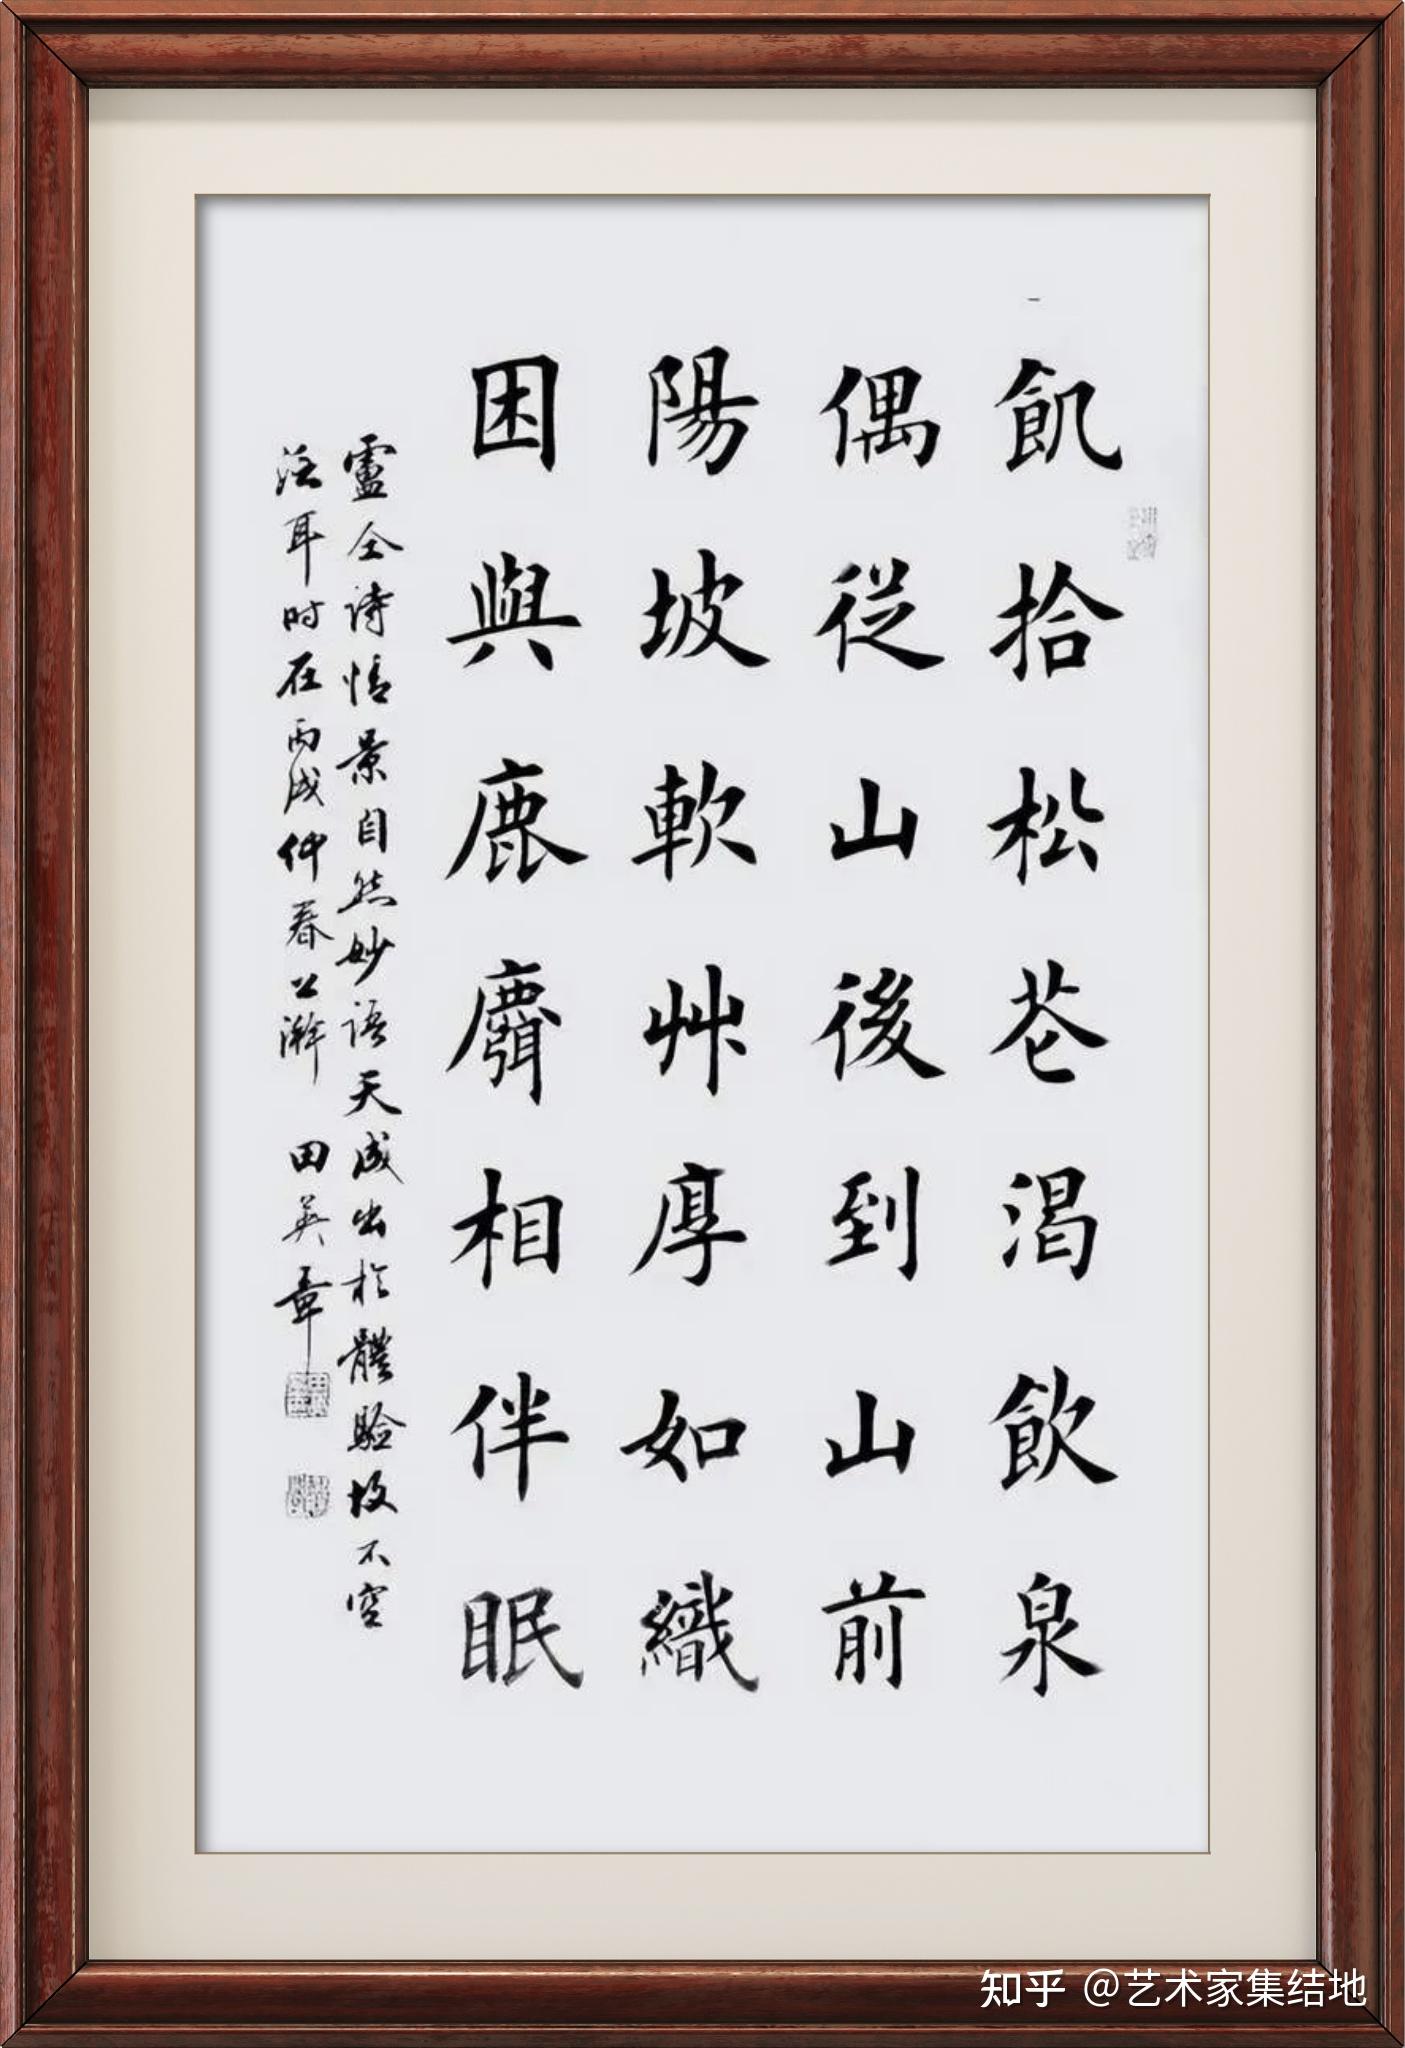 飢拾松花渴飲泉
偶從山後到山前
陽坡軟艸厚如織
困與鹿麛相伴眠
盧仝詩情景自然妙語天成出於體驗故不空
泛耳时在丙戌仲春上澣 田英章
知乎 @艺术家集结地